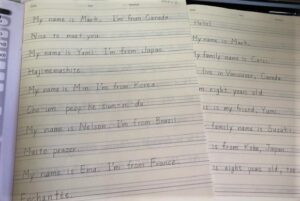 My name is Mark. I'm from Canada.
Nice to meet you.
My name is Yumi. I'm from Japan.
Hajimemashite.
My name is Min. I'm from Korea.
My name is Nelson. I'm from Brazil.
Muito prazer.
My name is Ema. I'm from France.
Enchantée.
Hello!
My name is Mark.
My family name is
live in Vancouver, Canada.
eight years old
is my friend, Yumi.
family name is Suzuki.
is from Kobe, Japan.
is eight years old, too.